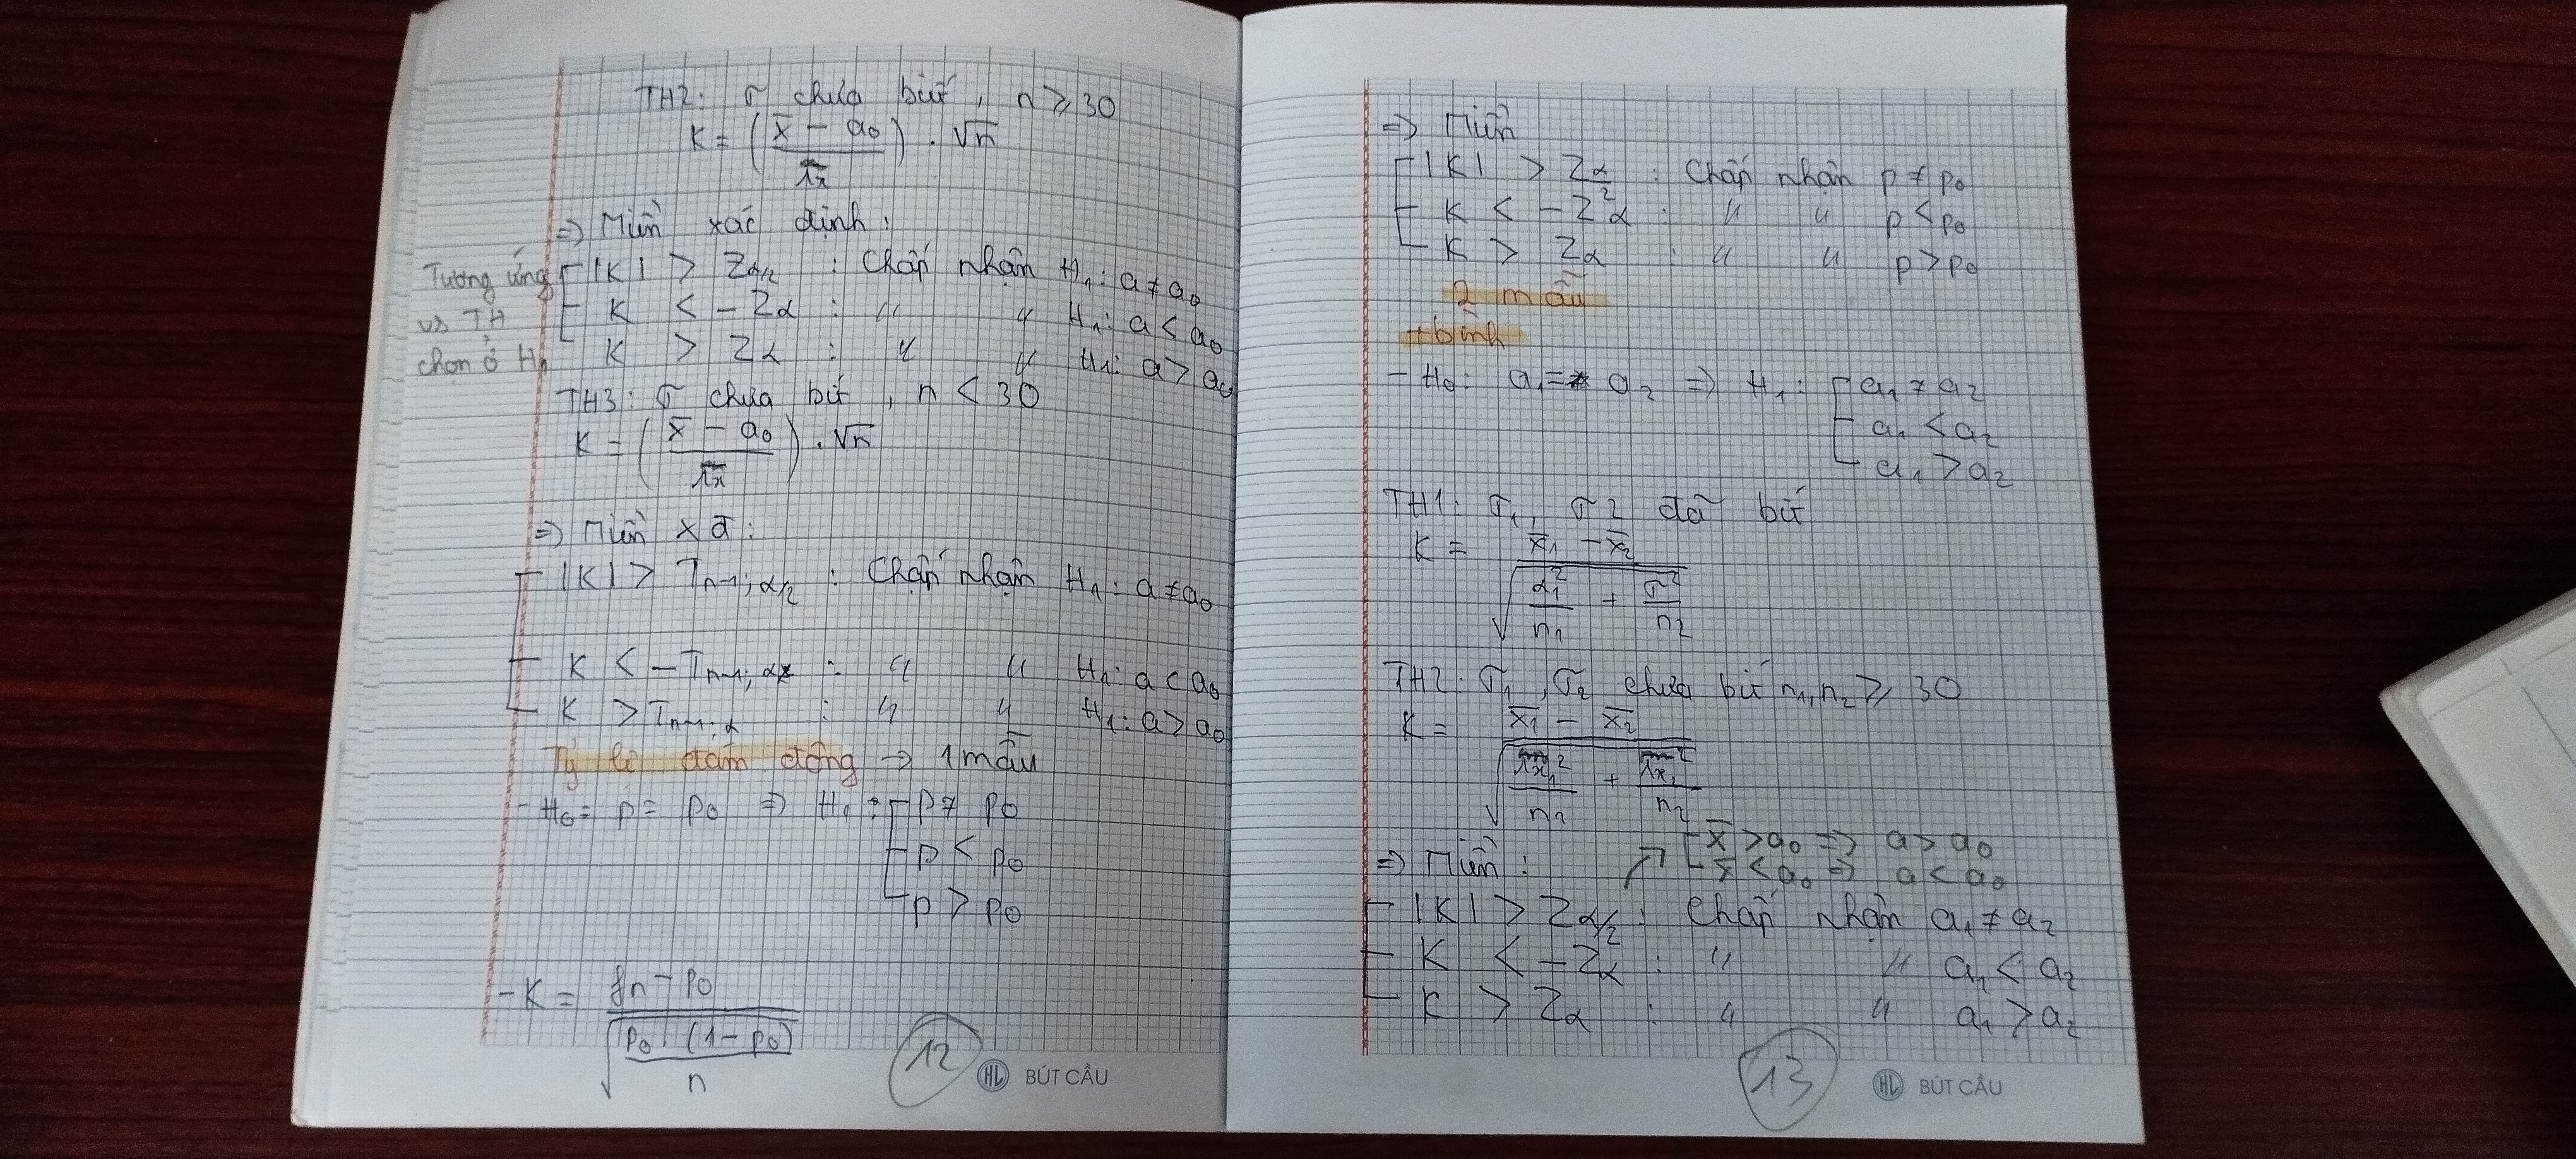 TH2: σ chưa biết, n ≥ 30
K = ( (x̄ - a₀) / ) . √n
=> Miền xác định:
Tương ứng vs TH chọn ở H₁
|K| > Zα/2 : Chấp nhận H₁: a ≠ a₀
K < -Zα : " " H₁: a < a₀
K > Zα : " " H₁: a > a₀
TH3: σ chưa biết, n < 30
K = ( (x̄ - a₀) / ) . √n
=> Miền xđ:
|K| > Tn-1; α/2 : Chấp nhận H₁: a ≠ a₀
K < -Tn-1; α : " " H₁: a < a₀
K > Tn-1; α : " " H₁: a > a₀
Tỷ lệ đám đông -> 1 mẫu
- H₀ = p = p₀ => H₁: p ≠ p₀
p < p₀
p > p₀
- K = (fn - p₀) / √(p₀ (1 - p₀) / n)
12
HL BÚT CẦU
=> Miền
|K| > Zα/2 : Chấp nhận p ≠ p₀
K < -Zα : " " p < p₀
K > Zα : " " p > p₀
2 mẫu
+ bình
- H₀: a₁ = a₂ => H₁: a₁ ≠ a₂
a₁ < a₂
a₁ > a₂
TH1: σ₁, σ2 đã biết
K = (x̄₁ - x̄₂) / √(α₁²/n₁ + σ²/n₂)
TH2: σ₁, σ₂ chưa biết n₁, n₂ ≥ 30
K = (x̄₁ - x̄₂) / √( ² / + ² / n₂)
x̄ > a₀ => a > a₀
x̄ < a₀ => a < a₀
=> Miền:
|K| > Zα/2 : Chấp nhận a₁ ≠ a₂
K < -Zα : " " a₁ < a₂
K > Zα : " " a₁ > a₂
13
HL BÚT CẦU